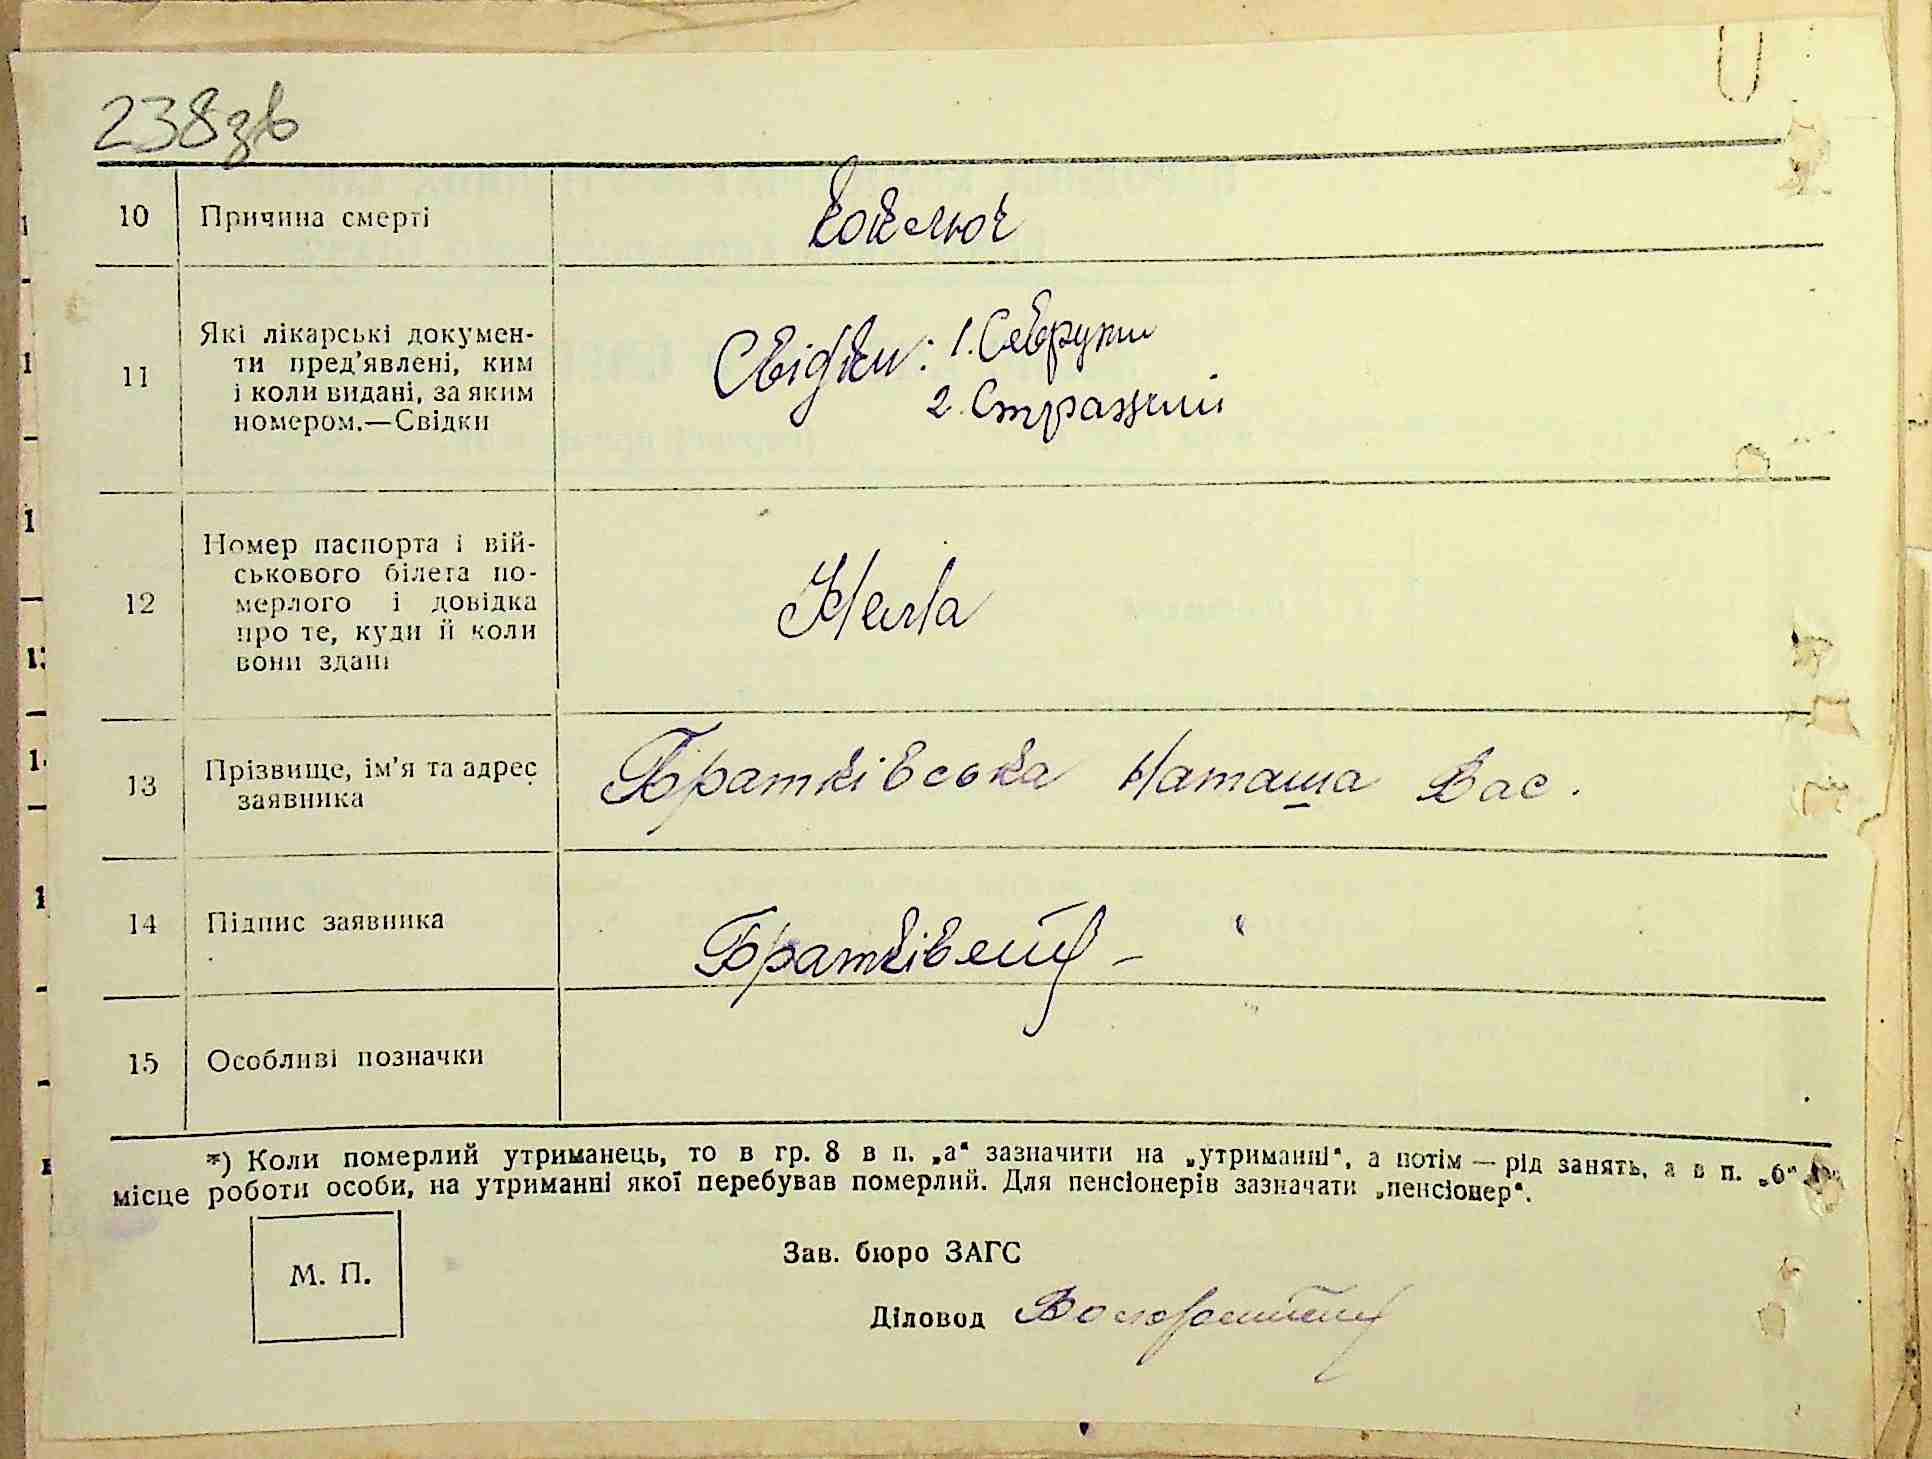 238зв
10 Причина смерті Коклюш
11 Які лікарські докумен-
ти пред'явлені, ким
і коли видані, за яким
номером.—Свідки
Свідки: 1. Севруги
2.
12 Номер паспорта і вій-
ськового білета по-
мерлого і довідка
про те, куди й коли
вони здані
Нема
13 Прізвище, ім'я та адрес
заявника
Братківська Наташа Вас.
14 Підпис заявника
15 Особливі позначки
*) Коли померлий утриманець, то в гр. 8 в п. „а“ зазначити на „утриманні“, а потім — рід занять, а в п. „б“
місце роботи особи, на утриманні якої перебував померлий. Для пенсіонерів зазначати „пенсіонер“.
М. П.
Зав. бюро ЗАГС
Діловод